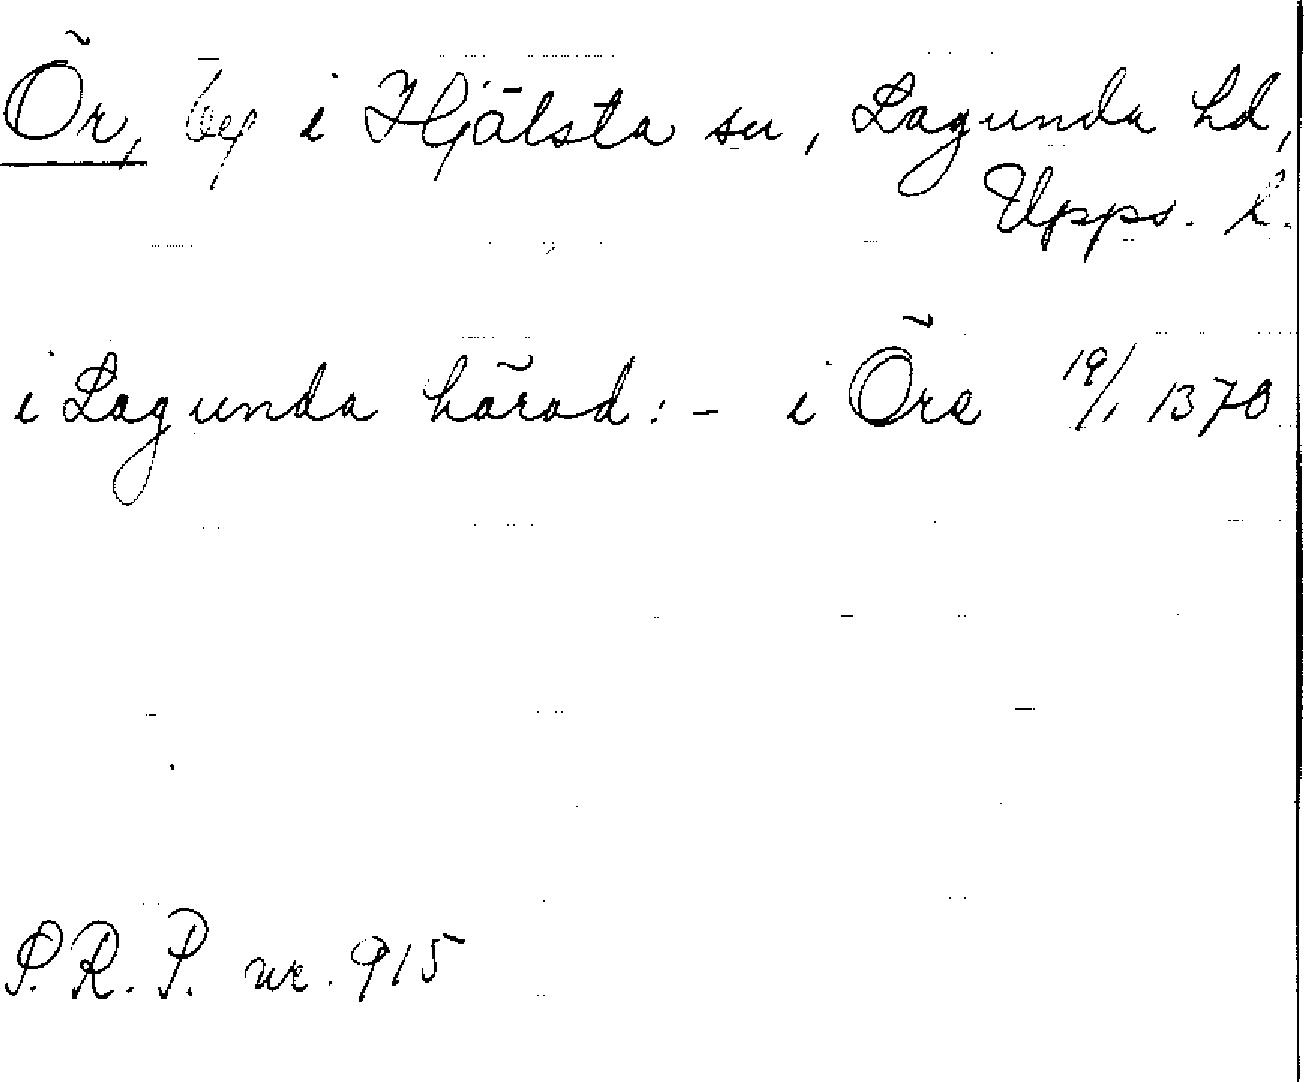 Ör, by i Hjälsta sn, Lagunda hd,
Upps. l.
i Lagunda härad: - i Öra 19/1 1370
S.R.P. nr. 915